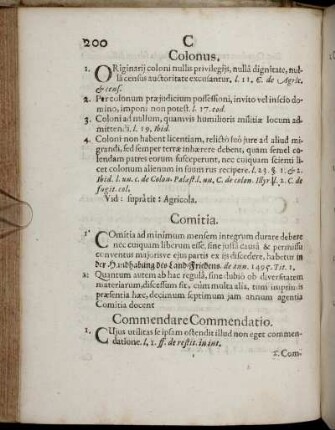 200 C
Colonus.
1. ORiginarij coloni nullis privilegijs, nullâ dignitate, nul-
lâ census auctoritate excusantur. l. 11. C. de Agric.
& cens.
2. Per colonum præjudicium possessioni, invito vel inscio do-
mino, imponi non potest. l. 17. eod.
3. Coloni ad nullum, quamvis humilioris militiæ locum ad-
mittendi. l. 19. ibid.
4. Coloni non habent licentiam, relicto suo jure ad aliud mi-
grandi, sed semper terræ inhærere debent, quam semel co-
lendam patres eorum susceperunt, nec cuiquam scienti li-
cet colonum alienum in suum rus recipere. l. 23. §. 1. & 2.
ibid. l. un. c. de Colon. Palæst. l. un. C. de colon. Illyr. l. 2. C. de
fugit. col.
Vid: supra tit: Agricola.
Comitia.
1. COmitia ad minimum mensem integrum durare debere
nec cuiquam liberum esse, sine justa causâ & permissu
conventus majorisve ejus partis ex iis discedere, habetur in
der Handhabung des Land-Friedens. de ann. 1495. Tit. 1.
2. Quantum autem ab hac regulâ, sine dubio ob diversitatem
materiarum, discessum sit, cùm multa alia, tum inprimis
præsentia hæc, decimum septimum jam annum agentia
Comitia docent
Commendare Commendatio.
1. CUjus utilitas se ipsam ostendit illud non eget commen-
datione. l. 2. ff. de restit. in int.
2. Com-